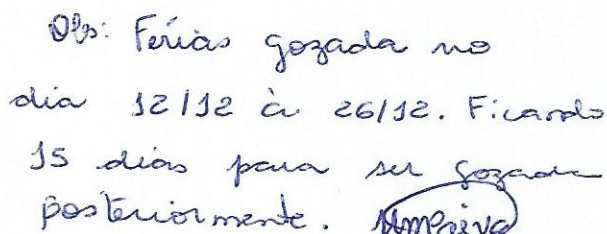 Obs: Férias gozada no
dia 12/12 à 26/12. Ficando
15 dias para ser gozada
posteriormente.